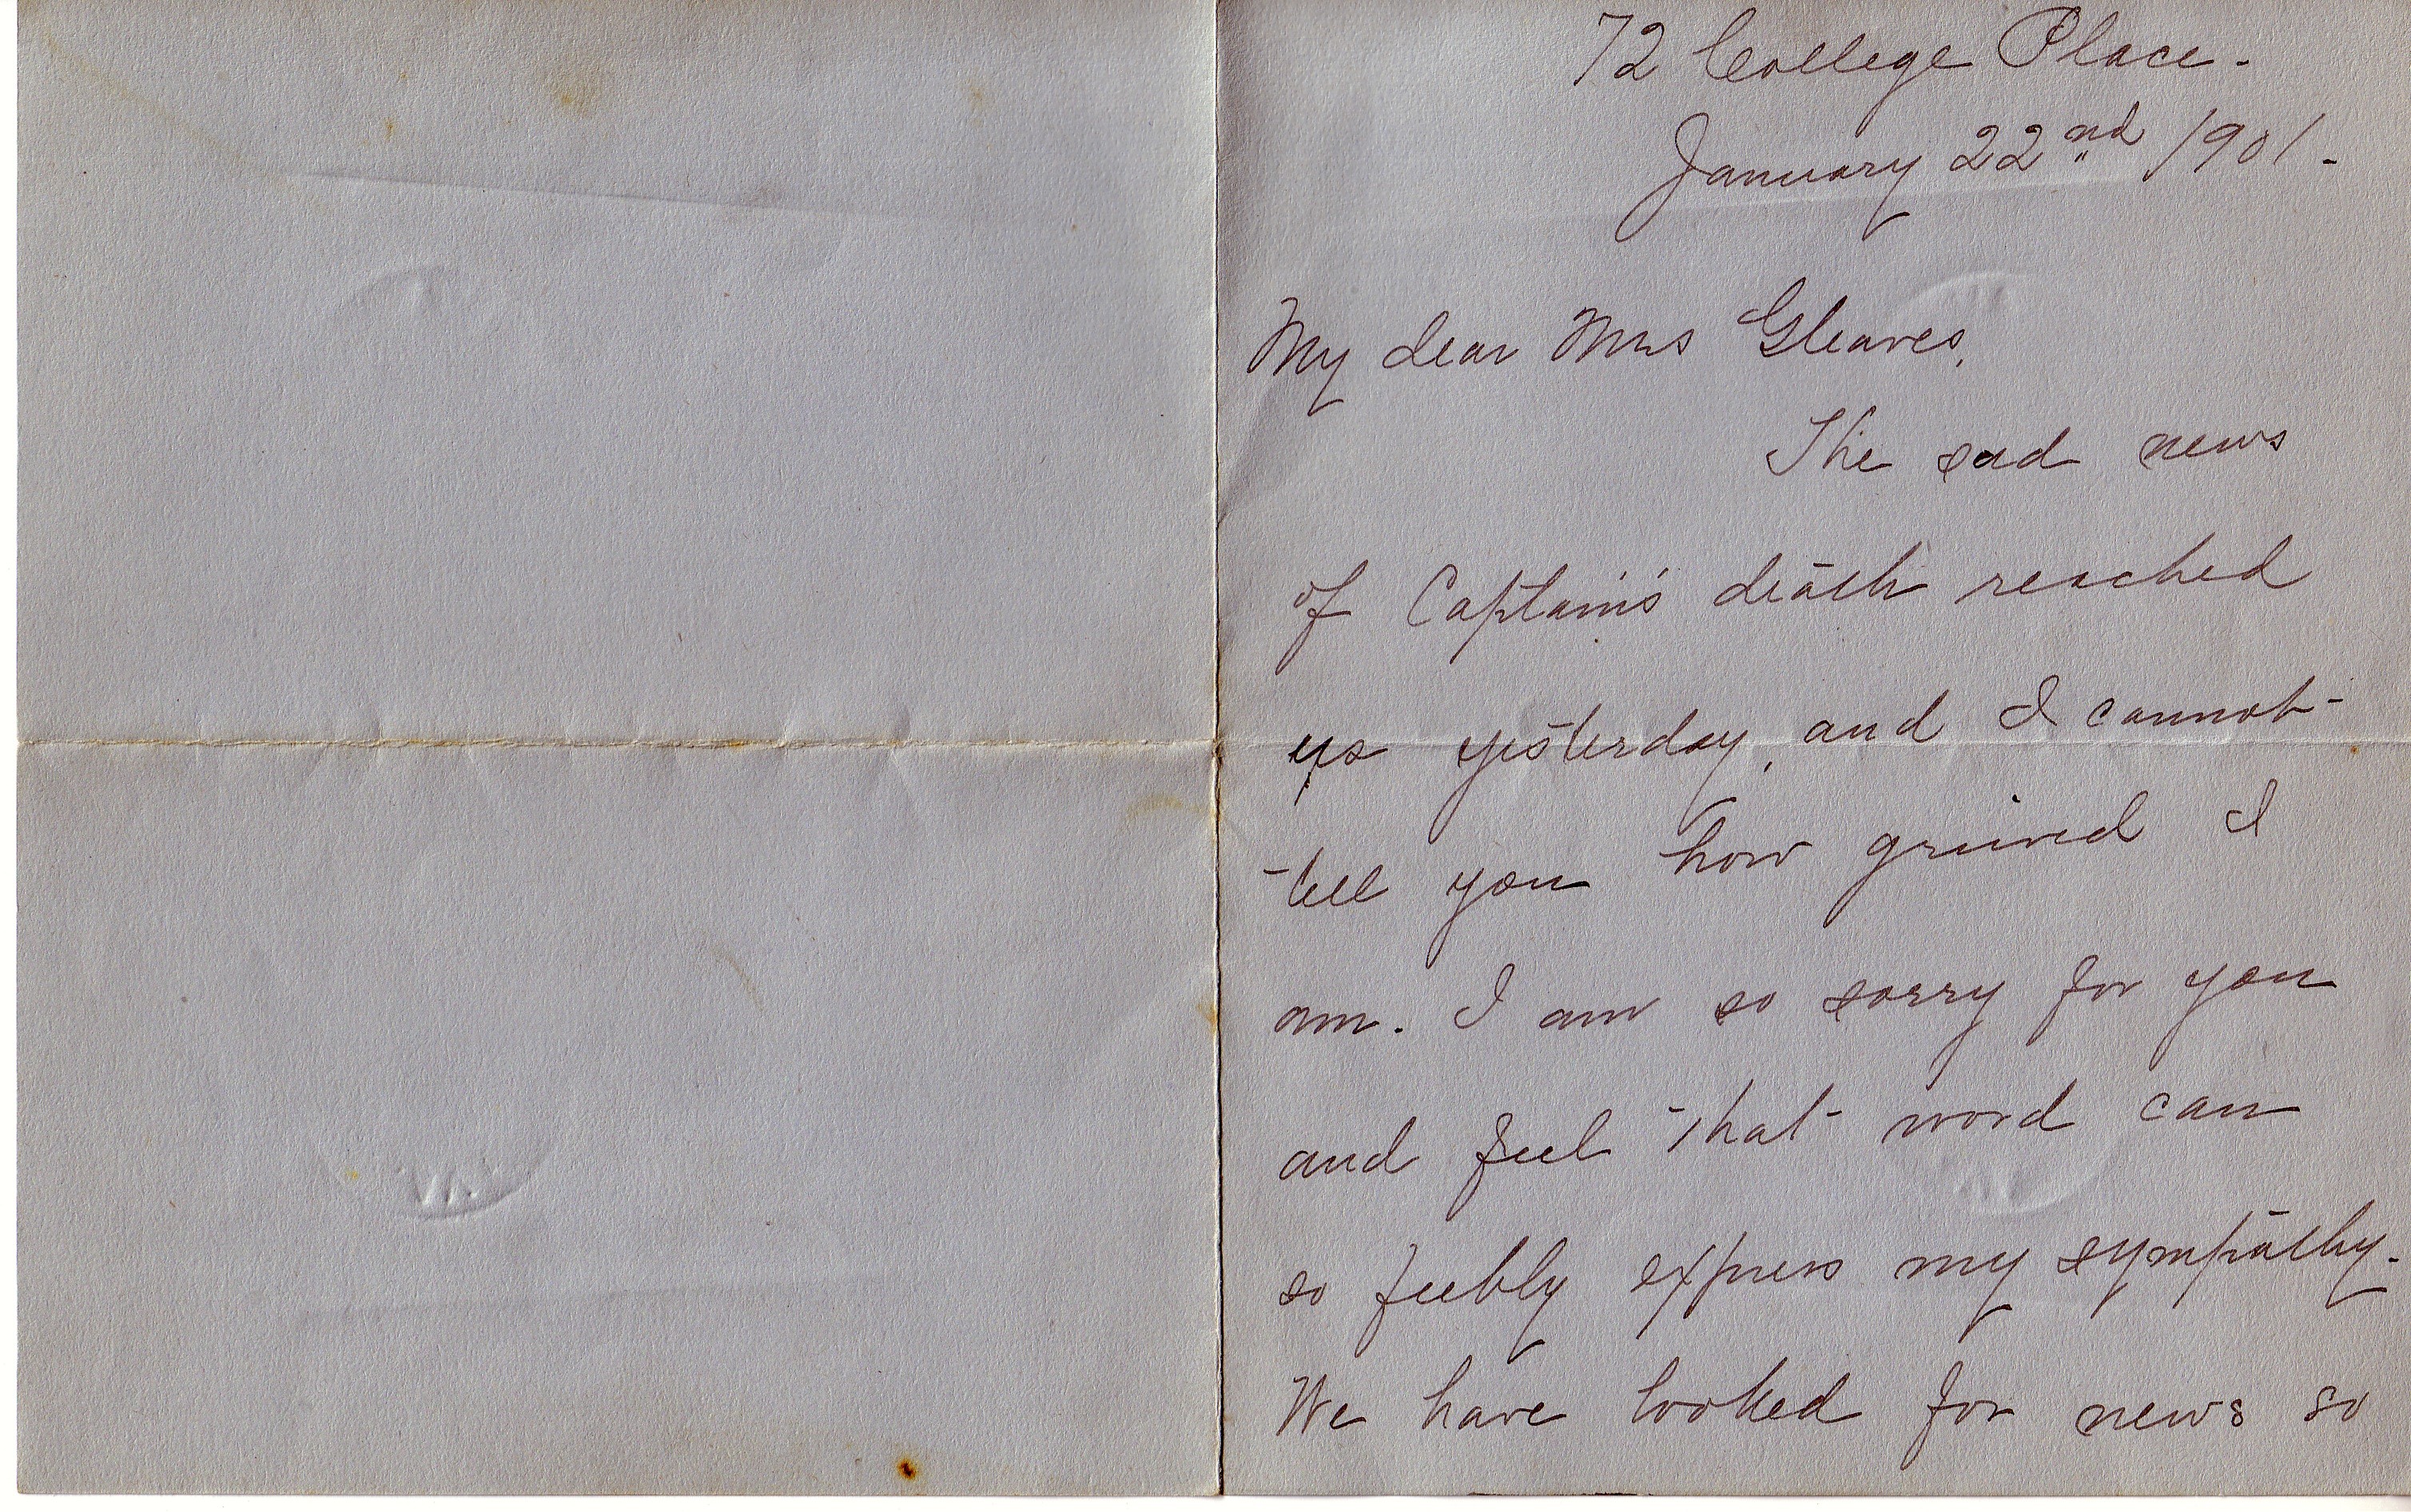 72 College Place -
January 22nd 1901 -
My dear Mrs Gleaves,
The sad news
of Captain's death reached
us yesterday, and I cannot
tell you how grieved I
am. I am so sorry for you
and feel that word can
so feebly express my sympathy -
We have looked for news so